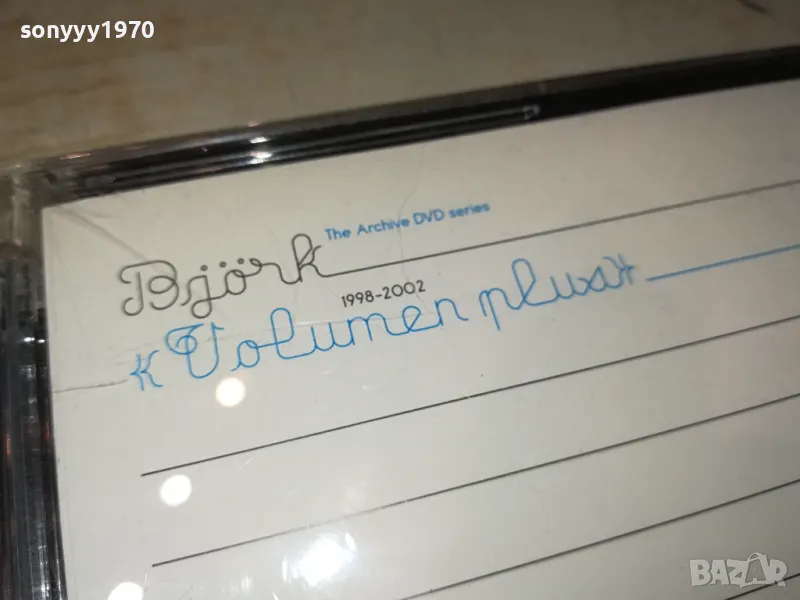 sonyyy1970
The Archive DVD series
Björk
1998-2002
«Volumen plus»
BAZAR